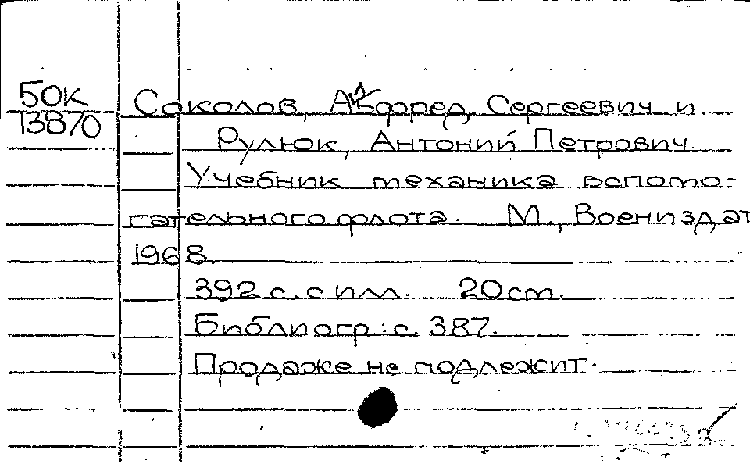 50К
13870
Соколов, Альфред Сергеевич и
Рулюк, Антоний Петрович.
Учебник механика вспомо-
гательного флота. М., Воениздат
1968.
392 с. с илл. 20 cm.
Библиогр: с. 387.
Продаже не подлежит.